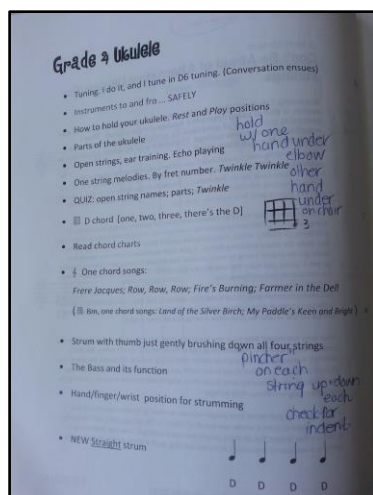 Grade 4 Ukulele
• Tuning. I do it, and I tune in D6 tuning. (Conversation ensues)
• Instruments to and fro ... SAFELY
• How to hold your ukulele. Rest and Play positions
hold
w/ one
hand under
elbow
other
hand
under
on chair
• Parts of the ukulele
• Open strings, ear training. Echo playing
• One string melodies. By fret number. Twinkle Twinkle
• QUIZ: open string names; parts; Twinkle
• D chord [one, two, three, there's the D]
3
• Read chord charts
• One chord songs:
Frere Jacques; Row, Row, Row; Fire's Burning; Farmer in the Dell
( Bm, one chord songs: Land of the Silver Birch; My Paddle's Keen and Bright )
• Strum with thumb just gently brushing down all four strings
• The Bass and its function
• Hand/finger/wrist position for strumming
"pincher"
on each
string up+down
each
check for
indent
• NEW Straight strum
D D D D